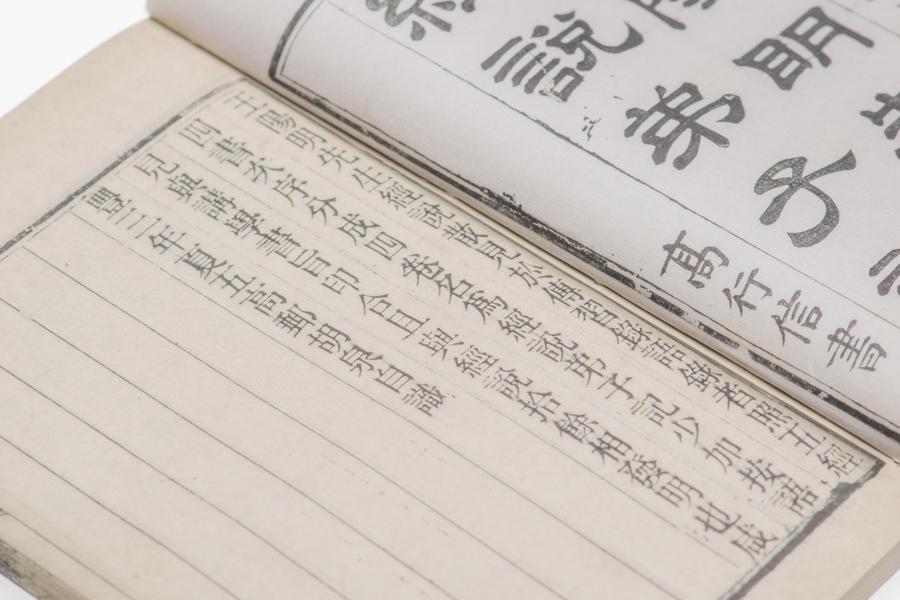 明
說弟子
高行信書
王陽明先生經說散見於傳習錄語錄者照五經
四書次序分成四卷名爲經說弟子記少加按語
見與講學書旨印合且與經說拾餘相發明也咸
豐三年夏五高郵胡泉自識